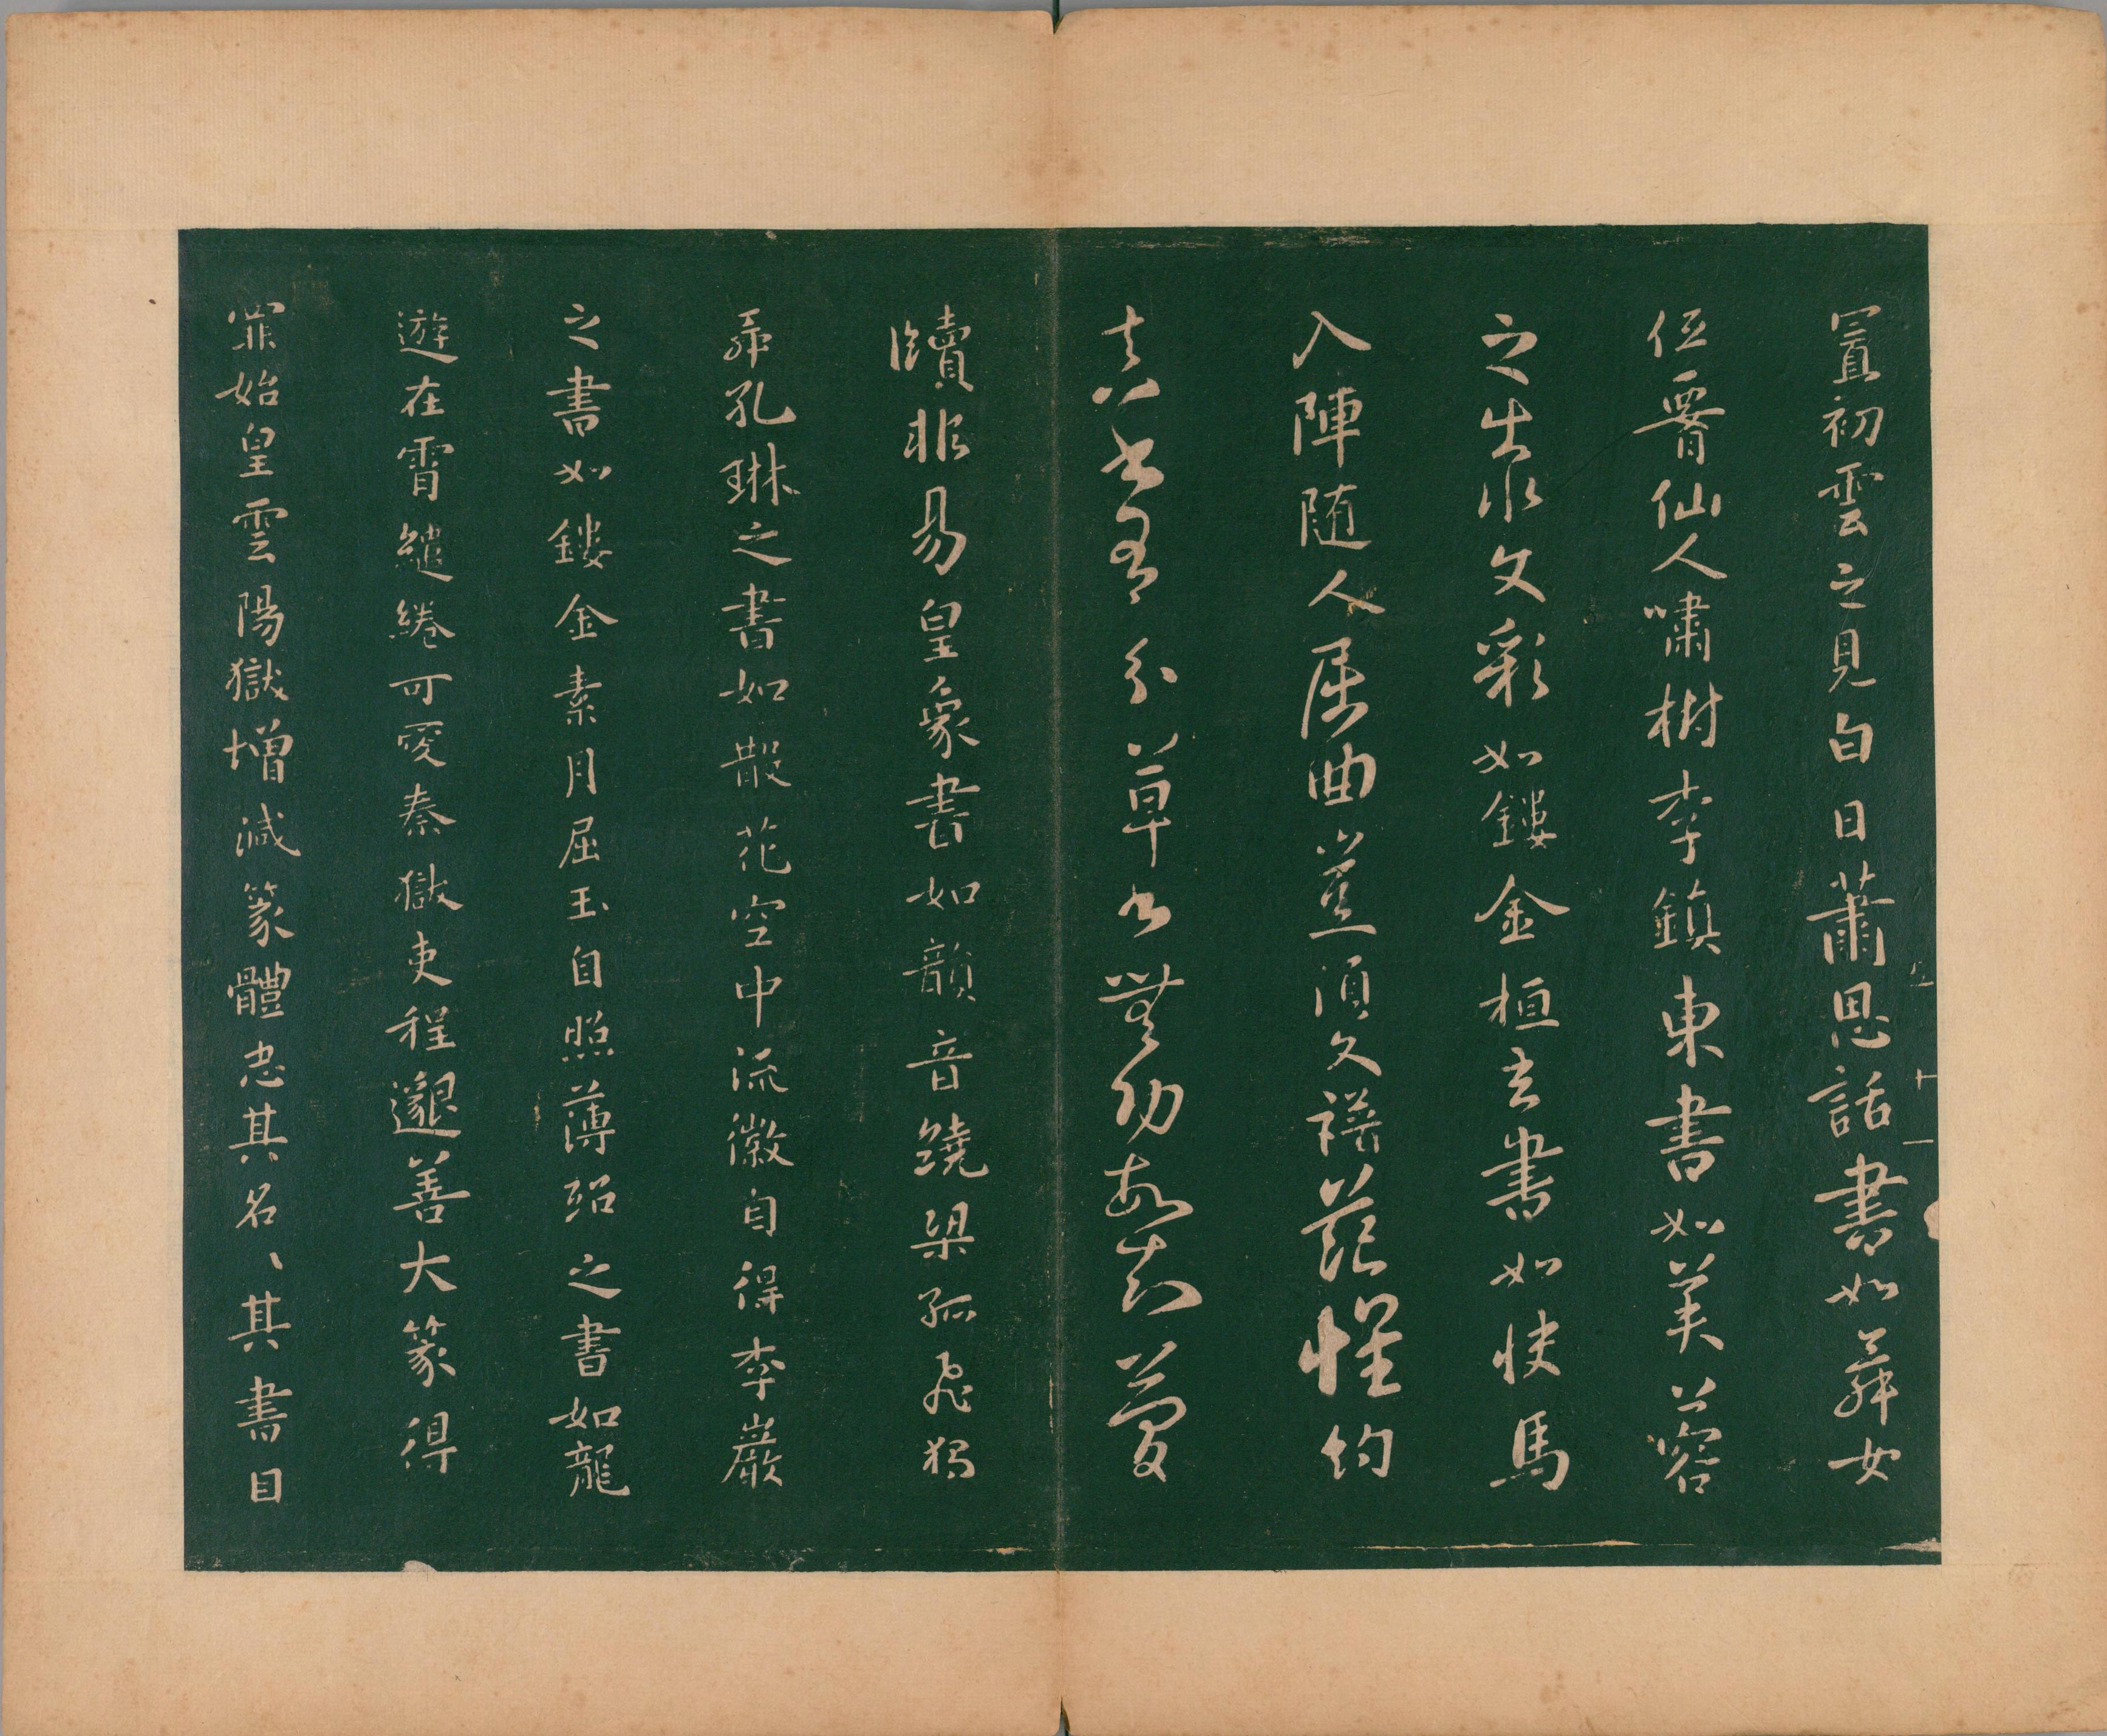 置初雲之見白日蕭思話書如舞女
低腰仙人嘯樹李鎮東書如芙蓉
之出水文彩如鏤金桓玄書如快馬
入陣随人屈曲豈須文譜范懷約
真書有分草書無功故知簡
牘非易皇象書如韻音繞梁孤飛獨
舞孔琳之書如散花空中流徽自得李巖
之書如鏤金素月屈玉自照薄紹之書如龍
遊在霄繾綣可愛秦獄吏程邈善大篆得
罪始皇雲陽獄增減篆體忠其名、其書目